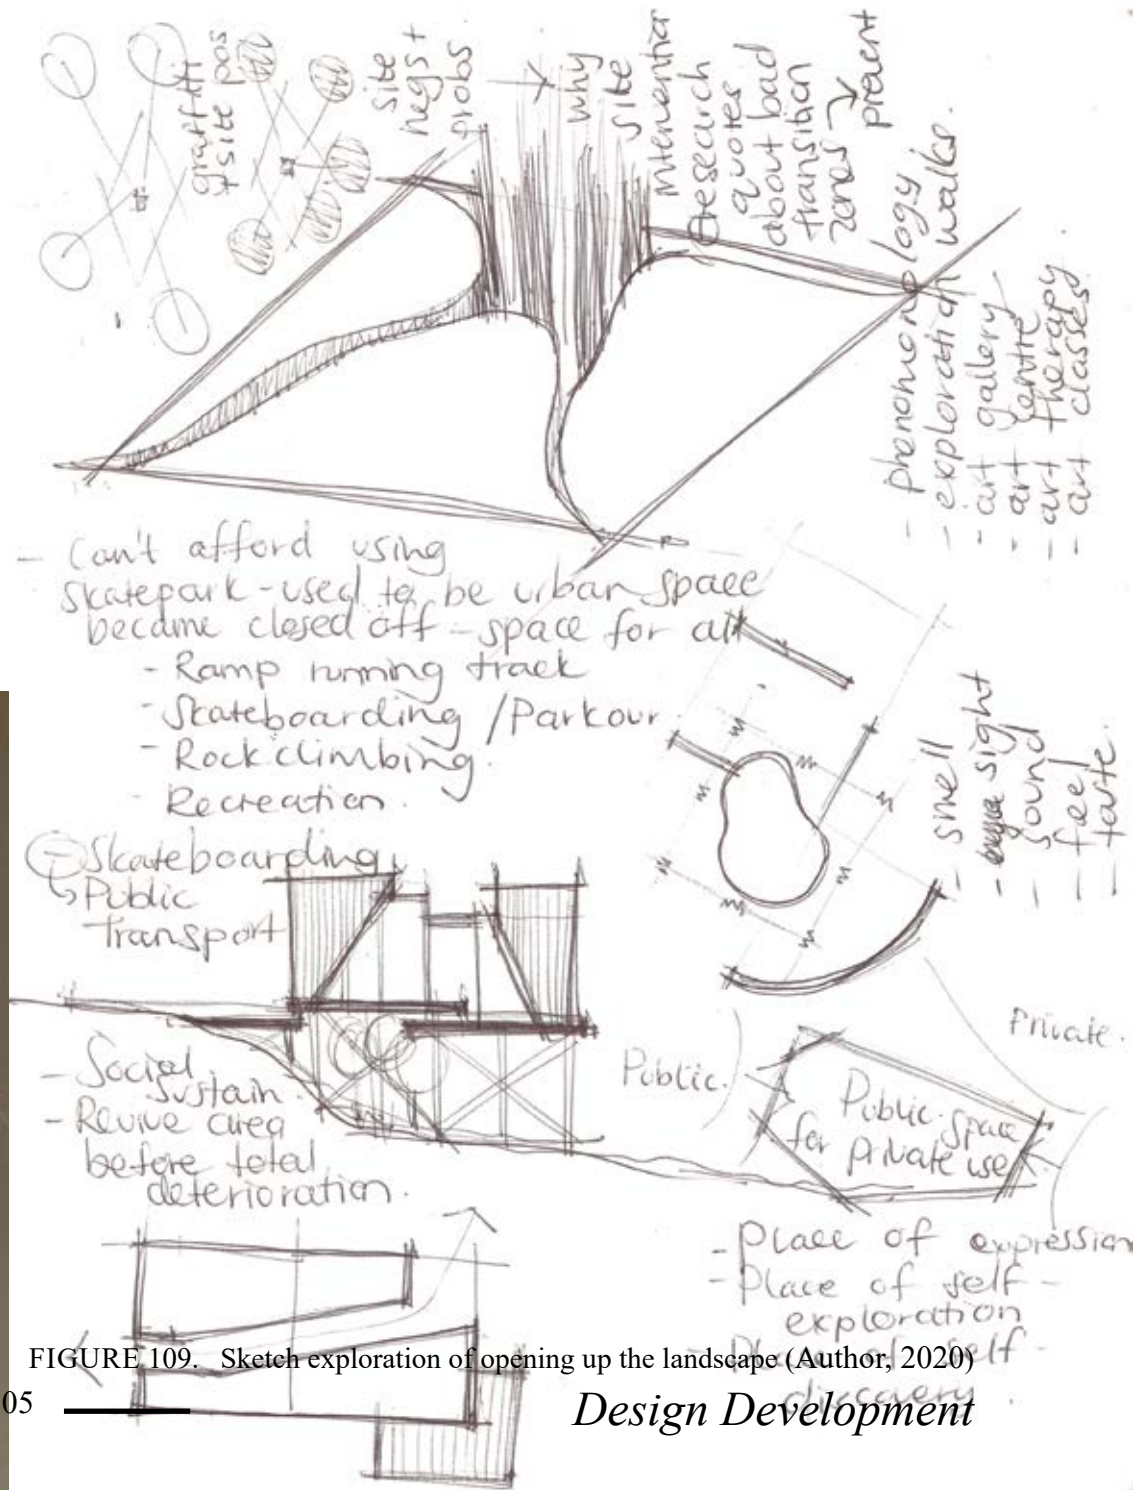 graffiti
+ site pos
site
negs +
probs
why
site
intervention
research
quotes
about bad
transition
zones →
prevent
- phenomonology
- exploration walks.
- art gallery
- art centre
- art therapy
- art classes
- Can't afford using
skatepark - used to be urban space
became closed off - space for all
- Ramp running track
- Skateboarding / Parkour
- Rock climbing.
- Recreation.
- smell
- sight
- sound
- feel
- taste.
- Skateboarding
↳ Public
Transport
- Social
sustain.
- Revive area
before total
deterioration.
Public.
Private.
Public space
for Private use
- Place of expression
- Place of self -
exploration
- Place of self -
discovery.
FIGURE 109. Sketch exploration of opening up the landscape (Author, 2020)
05
Design Development